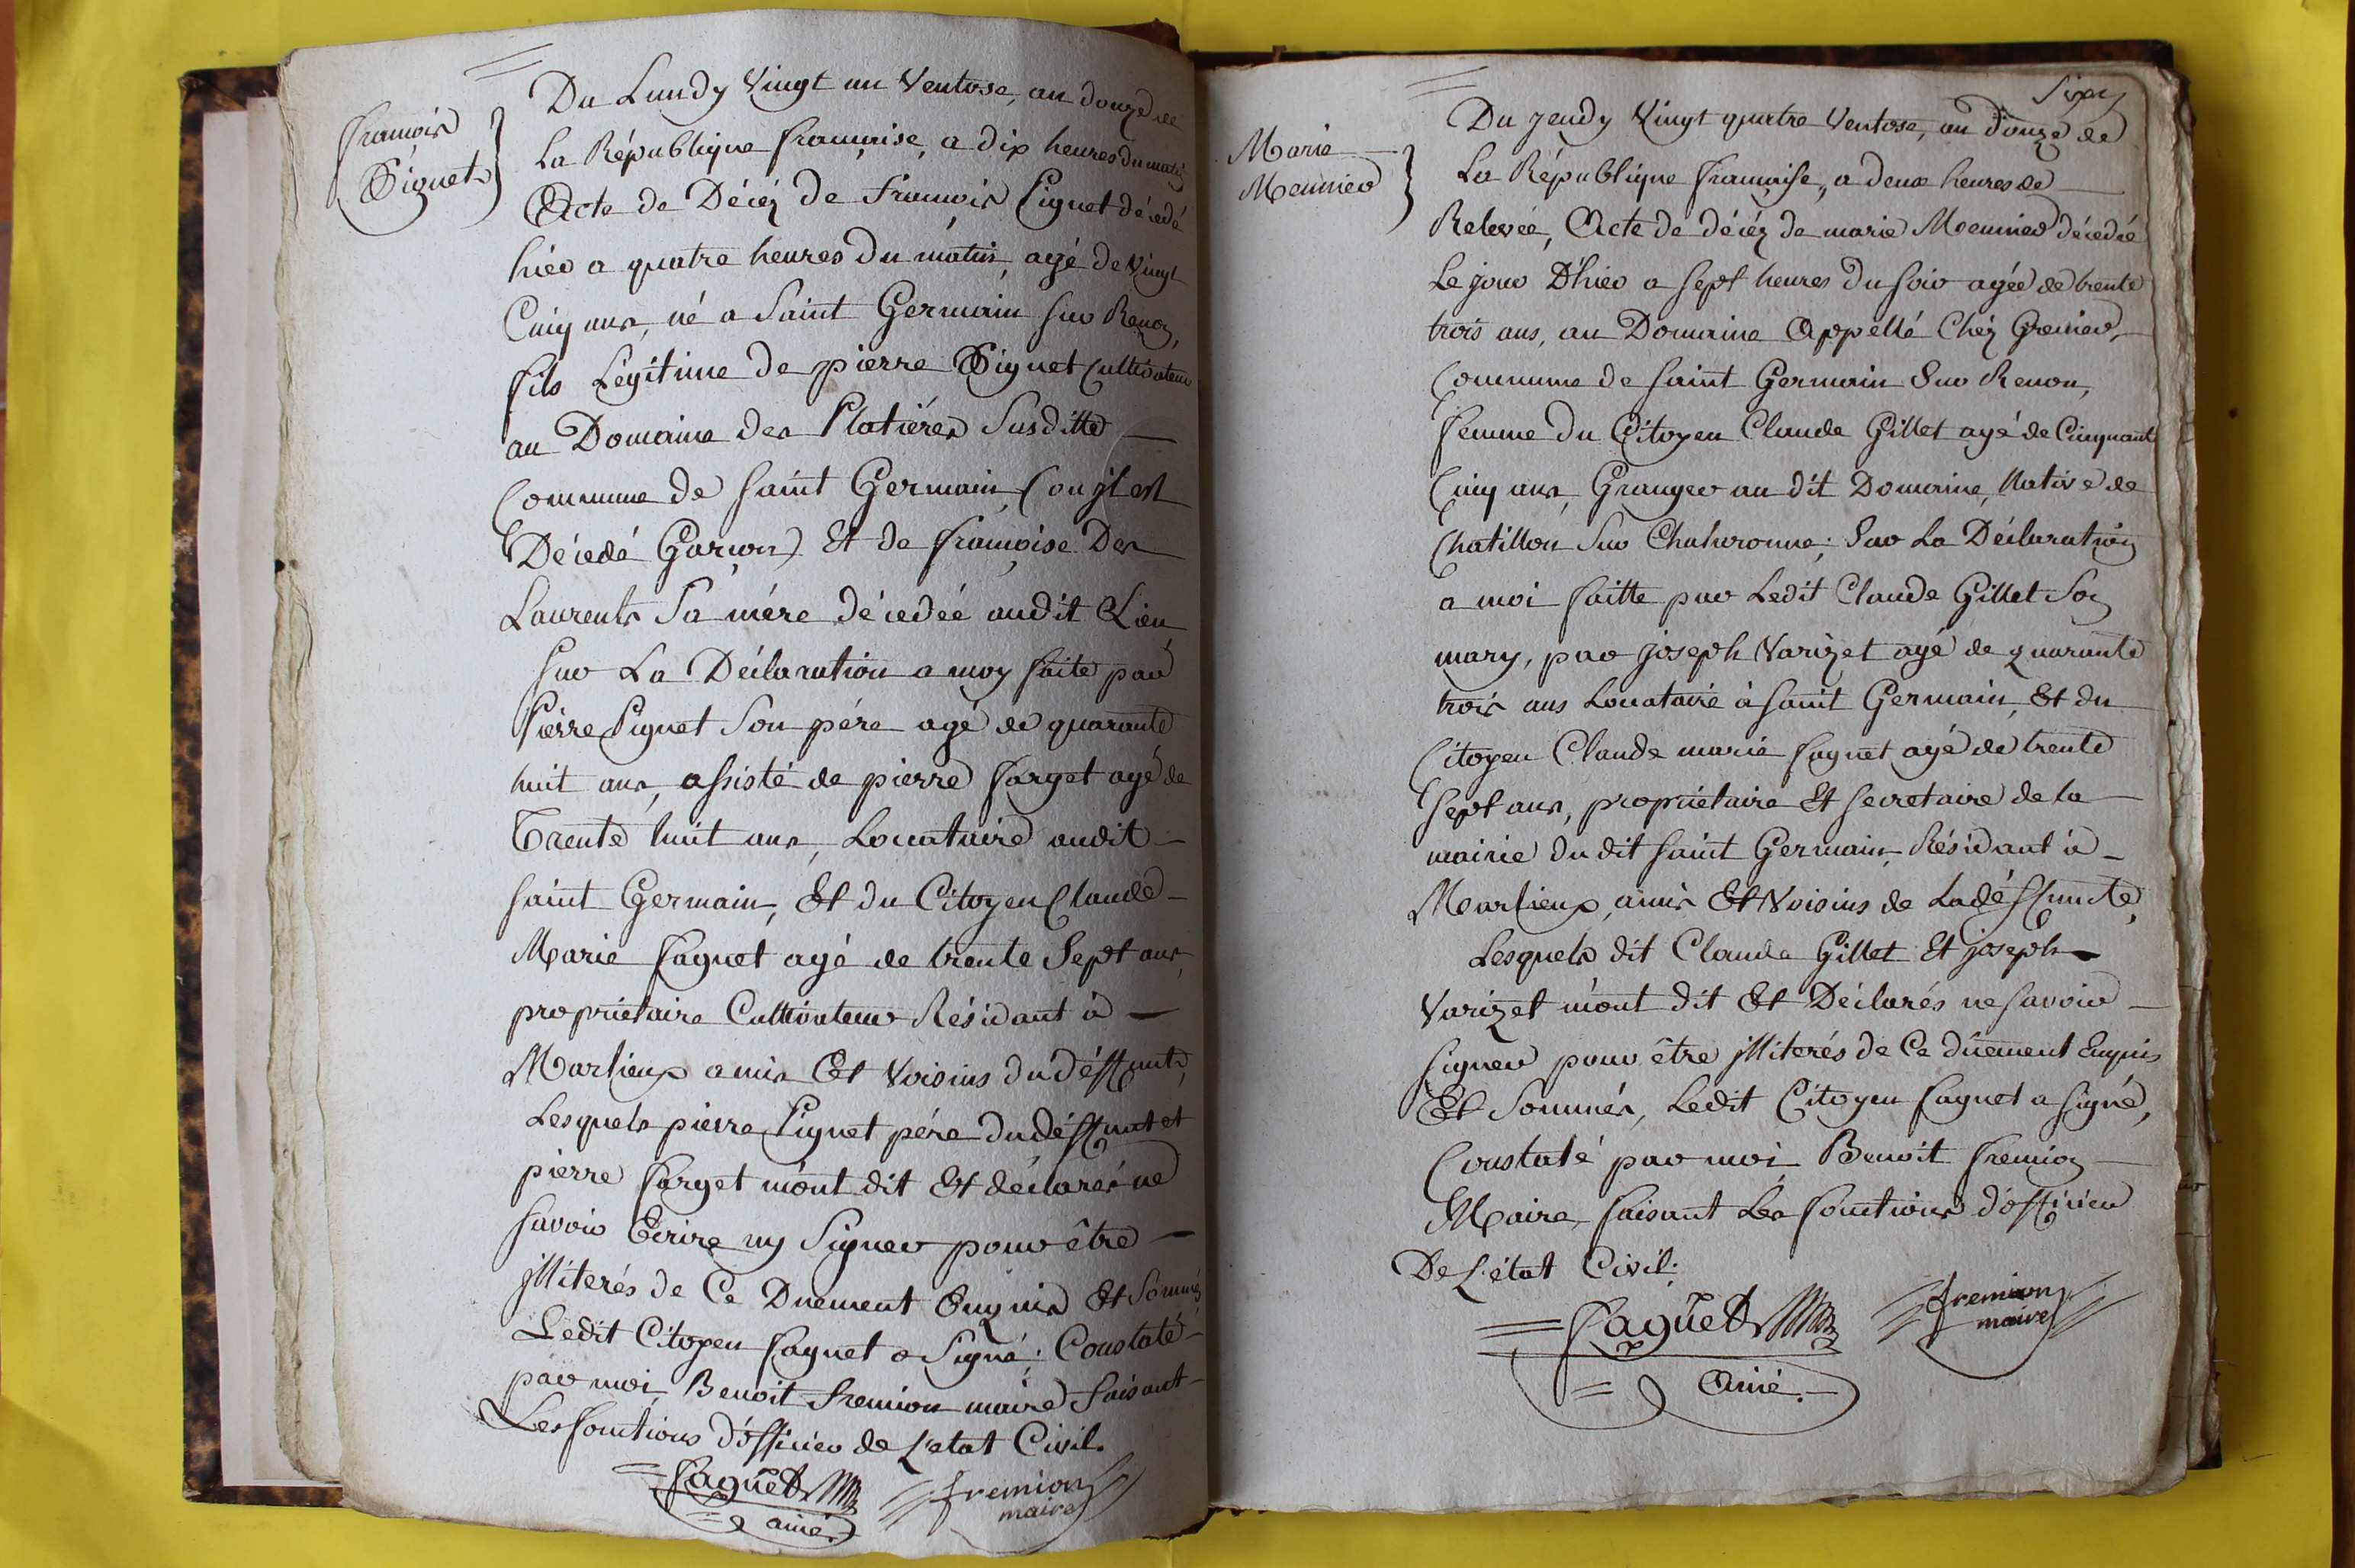 françois
Pignet
Du Lundy Vingt un Ventose, an douze de
La République françaises, a dix heures du matin
Acte de Décéz de François Pignet décedé
hier a quatre heures du matin, agé de Vingt
Cinq ans, né a Saint Germain sur Renon,
fils Légitime de pierre Pignet Cultivateur
au Domaine des Platiéres Susditte
Commune de Saint Germain (ou jl est
Décedé Garçon) Et de françoise Des
Laurents Sa mére décedéé audit Lieu
sur La Déclaration a moy faite par
Pierre Pignet Son pére agé de quarante
huit ans, assisté de pierre farget agé de
Trente huit ans, Locataire audit
saint Germain, Et du Citoyen Claude
Marie faguet agé de trente Sept ans,
propriétaire Cultivateur Résidant à
Marlieux amis Et Voisins du déffunt,
Lesquels pierre Pignet pére du déffunt et
pierre farget m'ont dit Et déclarés ne
savoir Ecrire ny Signer pour être
jlliterés de Ce Duement Enquis Et Sommés
Ledit Citoyen faguet a Signé; Constaté
par moi Benoit fremion maire faisant
Les fonctions d'officier de L'etat Civil.
faguet fremion
ainé maire
Sixy
Marie
Meunier
Du jeudy Vingt quatre Ventose, an douze de
La République française, a deux heures de
Relevée, Acte de décéz de marie Meunier décedéé
Le jour D'hier a sept heures du soir agéé de trente
trois ans, au Domaine Appellé Chéz Grenier,
Commune de saint Germain Sur Renon,
femme du Citoyen Claude Gillet agé de Cinquante
Cinq ans Granger au dit Domaine, Native de
Chatillon Sur Chalaronne; Sur La Déclaration
a moi faitte par Ledit Claude Gillet Son
mary, par joseph Varizet agé de quarante
trois ans Locataire à saint Germain, Et du
Citoyen Claude marie faguet agé de trente
sept ans, propriétaire Et secretaire de la
mairie du dit saint Germain Résidant à
Marlieux, amis Et Voisins de La déffuncte,
Lesquels dit Claude Gillet Et joseph
Varizet m'ont dit Et Déclarés ne savoir
signer pour être jlliterés de Ce dûement Enquis
Et Sommés, Ledit Citoyen faguet a signé,
Constaté par moi Benoit fremion
Maire, faisant Les fonctions d'officier
De L'état Civil.
faguet fremion
Ainé. maire